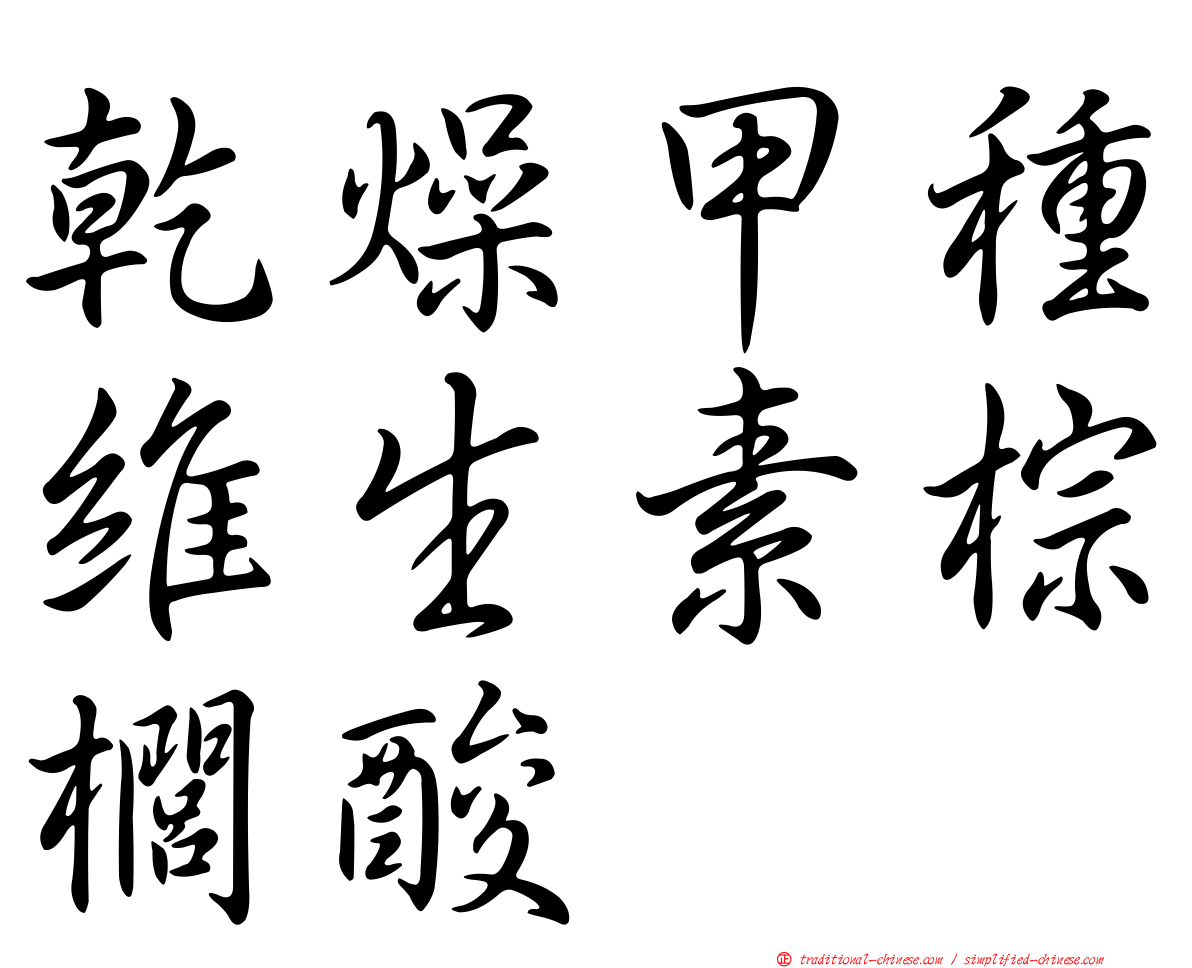 乾燥甲種
維生素棕
櫚酸
㊣ traditional-chinese.com / simplified-chinese.com